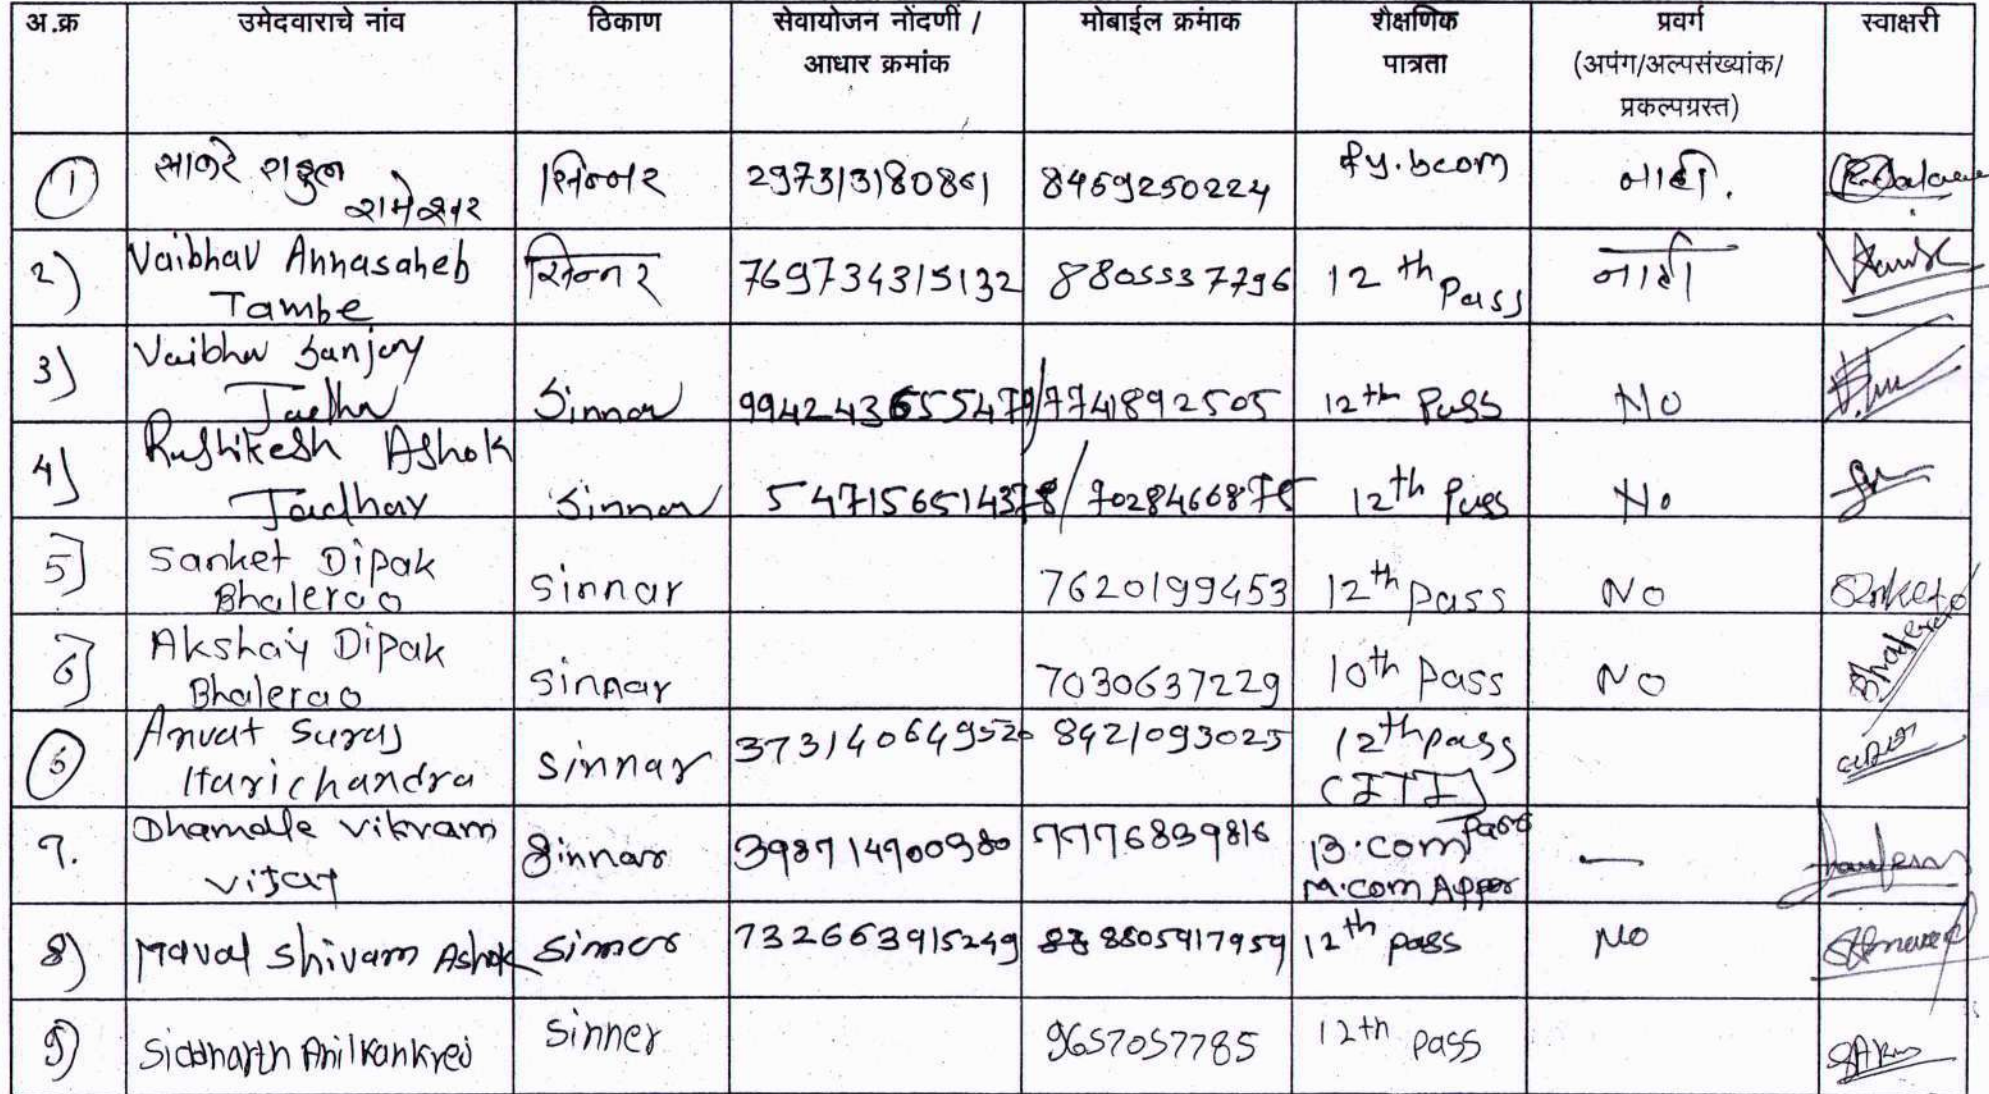 अ.क्र उमेदवाराचे नांव ठिकाण सेवायोजन नोंदणी / आधार क्रमांक मोबाईल क्रमांक शैक्षणिक पात्रता प्रवर्ग (अपंग/अल्पसंख्यांक/प्रकल्पग्रस्त) स्वाक्षरी
1 राहुल रामेश्वर सिन्नर 297313180861 8459250224 fy.bcom नाही.
2) Vaibhav Annasaheb Tambe सिन्नर 769734315132 8805537796 12 th Pass नाही
3) Vaibhav Sanjay Jadhav Sinnar 994243655479 / 7741892505 12th Pass No
4) Rushikesh Ashok Jadhav Sinnar 547156514378 / 7028466875 12th Pass No
5] Sanket Dipak Bhalerao Sinnar 7620199453 12th pass No
6] Akshay Dipak Bhalerao Sinnar 7030637229 10th pass No
Suraj Harichandra Sinnar 373140649520 8421093025 12th pass (ITI)
7. Dhamale Vikram Vijay Sinnar 398714900380 7776839816 B.com pass M.com Apper —
8) Maval Shivam Ashok Sinnar 732663915249 8805917959 12th pass No
9) Siddharth Anil Sinner 9657057785 12th pass